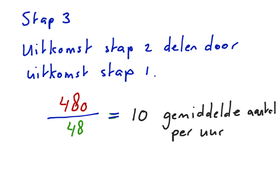 Stap 3
Uitkomst stap 2 delen door
uitkomst stap 1.
480
48
= 10 gemiddelde aantal
per uur